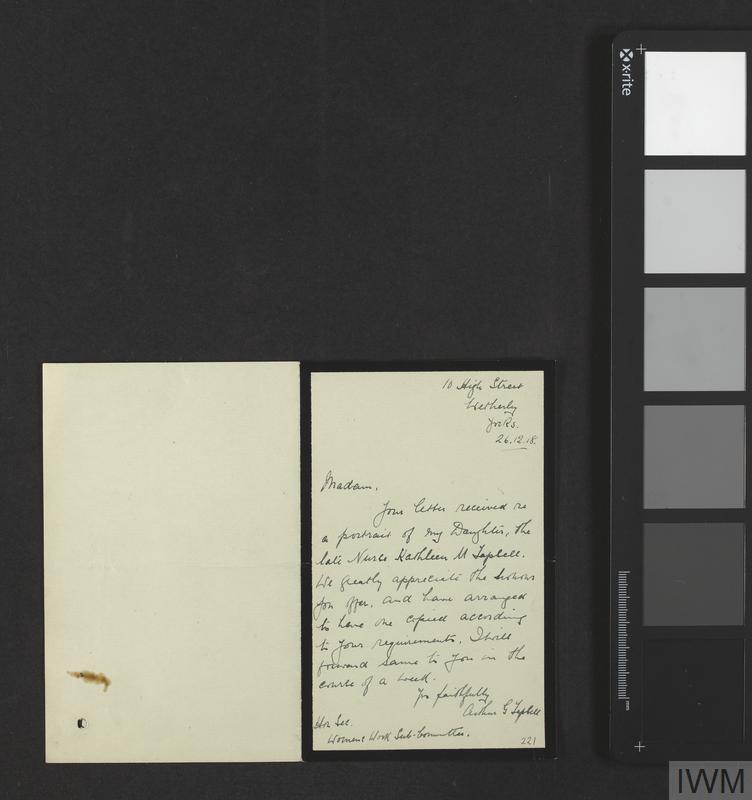 10 High Street
Wetherby
Yorks.
26.12.18.
Madam,
Your letter received re
a portrait of my Daughter, the
late Nurse Kathleen M
We greatly appreciate the honour
you offer, and have arranged
to have one copied according
to your requirements. I will
forward same to you in the
course of a week.
Yrs faithfully
Arthur G
Hon Sec.
Womens Work Sub-Committee.
221
x-rite
mm
IWM